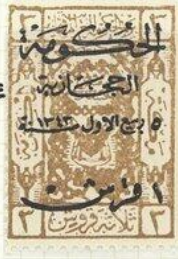 الحكومة
الحجازية
٥ ربيع الاول سنة ١٣٤٣
١ قرش
٣ ثلاثة قروش ٣